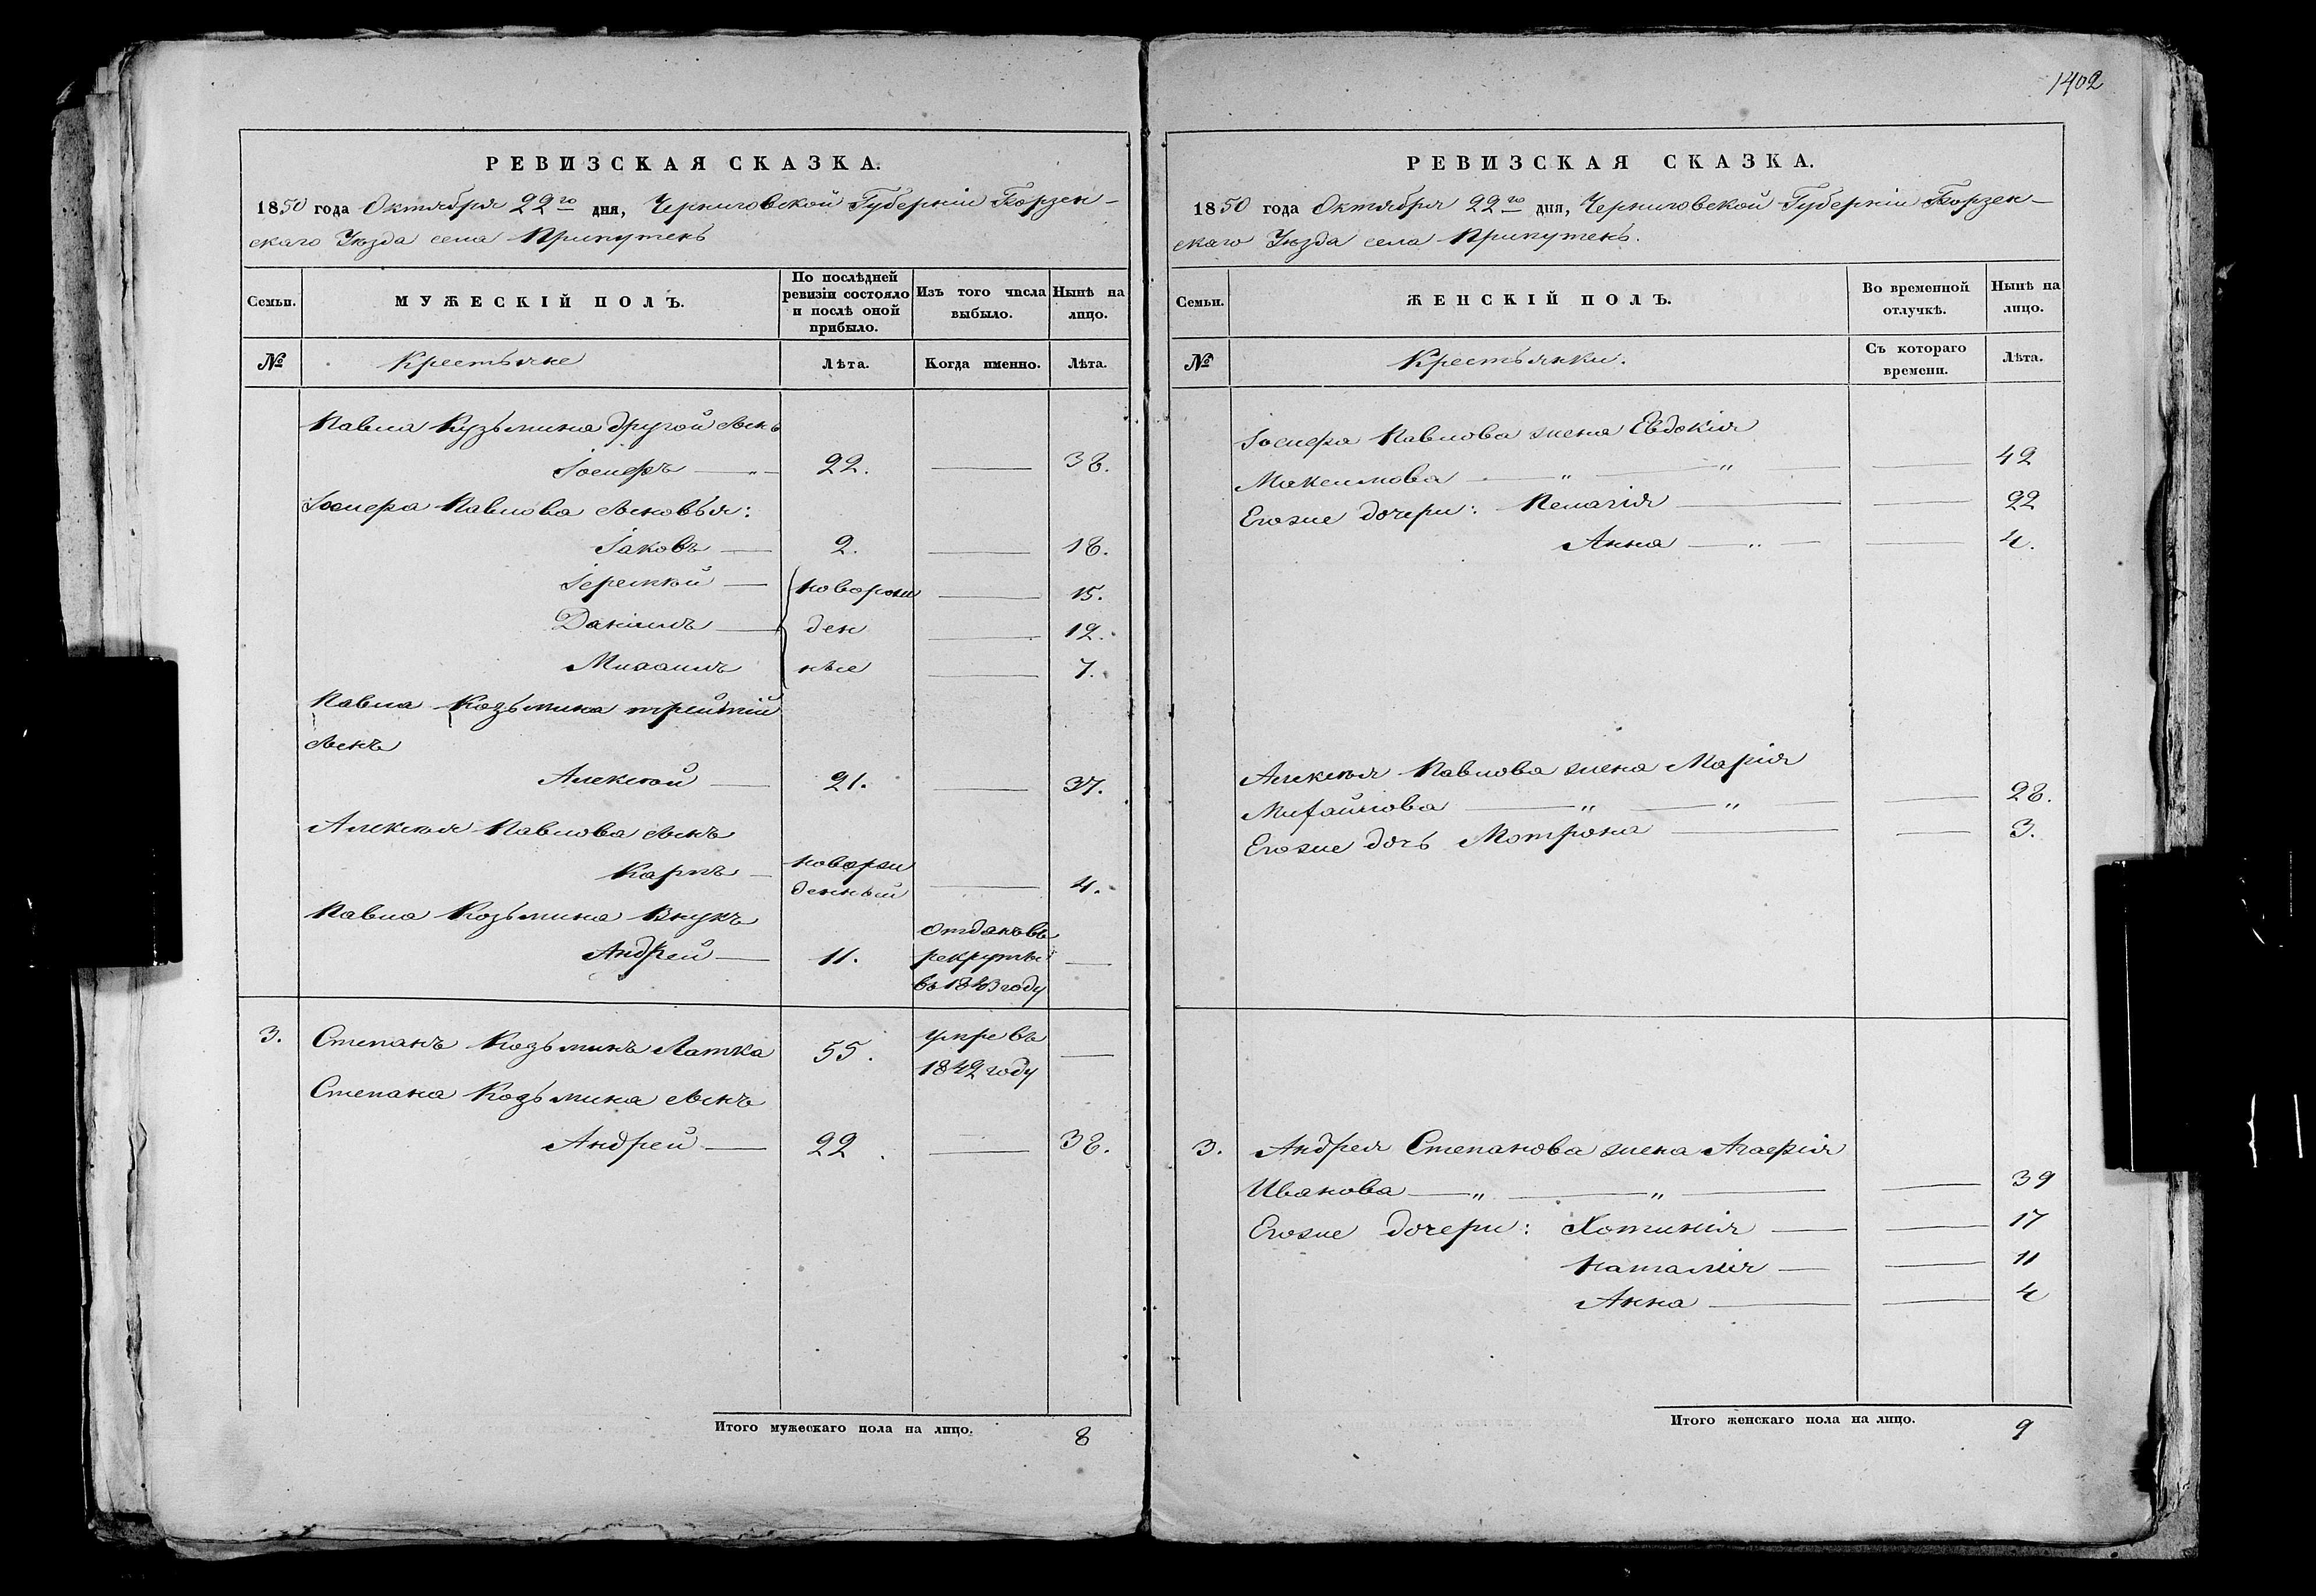 1402
РЕВИЗСКАЯ СКАЗКА.
1850 года Октября 22го дня, Черниговской Губерніи Борзен-
скаго Уѣзда села Припутенъ
Семьи. МУЖЕСКІЙ ПОЛЪ. По послѣдней ревизіи состояло и послѣ оной прибыло. Изъ того числа выбыло. Нынѣ на лицо.
№ Крестьяне Лѣта. Когда именно. Лѣта.
Павла Кузьмина другой сынъ
Іосифъ — 22. — 38.
Іосифа Павлова сыновья:
Іаковъ — 2. — 18.
Іеремій — новорож — 15.
Даніилъ — ден — 12.
Михаилъ ные — 7.
Павла Козьмина третій
сынъ
Алексѣй — 21. — 37.
Алексѣя Павлова сынъ
Карпъ — новорж
денный — 4.
Павла Козьмина внукъ отданъ въ
Андрей — 11. рекруты —
въ 1843 году
3. Степанъ Козьминъ Латка 55. умре въ —
1842 году
Степана Козьмина сынъ
Андрей — 22. — 38.
Итого мужескаго пола на лицо. 8
РЕВИЗСКАЯ СКАЗКА.
1850 года Октября 22го дня, Черниговской Губерніи Борзен-
скаго Уѣзда села Припутенъ.
Семьи. ЖЕНСКІЙ ПОЛЪ. Во временной отлучкѣ. Нынѣ на лицо.
№ Крестьянки. Съ котораго времени. Лѣта.
Іосифа Павлова жена Евдокія
Максимова — " — " — — 42
Егоже дочери: Пелагія — — 22
Анна — " — — 4.
Алексѣя Павлова жена Марія
Михайлова — " — " — — 28.
Егоже дочь Мотрона — — 3.
3. Андрея Степанова жена Агафія
Иванова — " — " — — 39
Егоже дочери: Хотинія — — 17
Наталія — — 11
Анна — — 4
Итого женскаго пола на лицо. 9